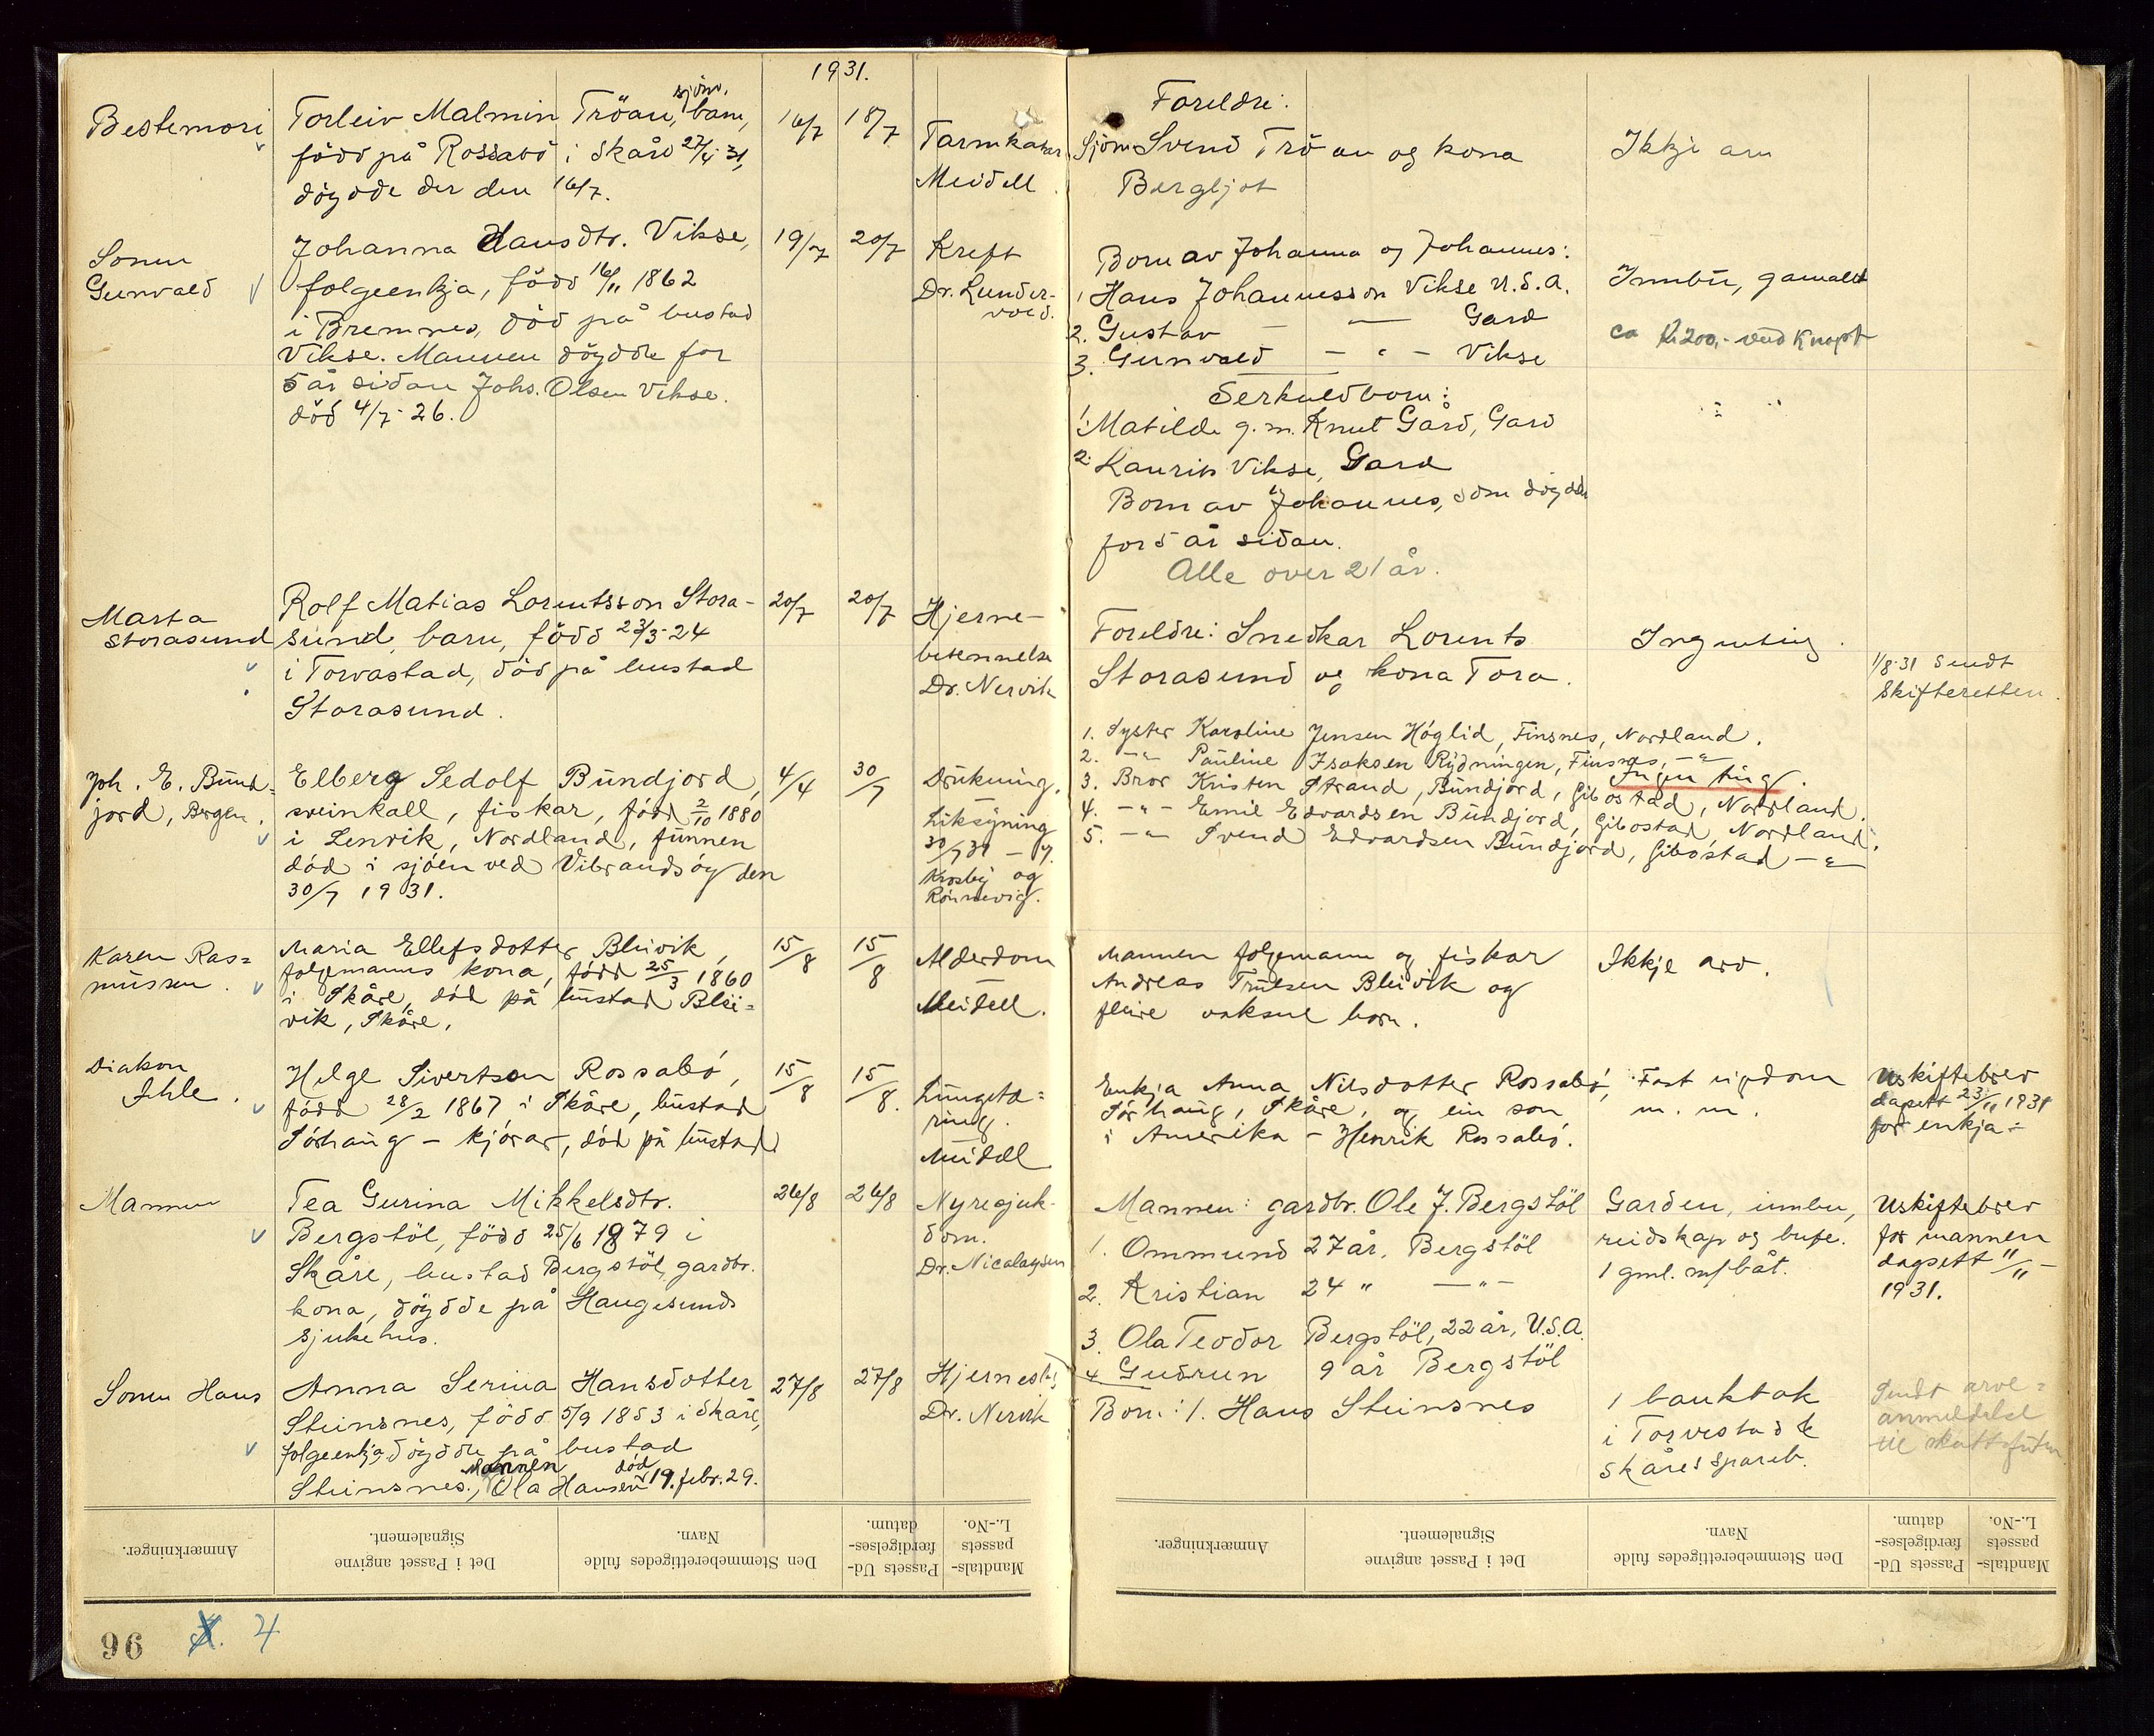 1931.
Bestemori
Torleiv Malmin Tröau, sjöm. barn,
född på Rossabö i Skåre 27/4 31,
döydde der den 16/7.
16/7
18/7
Tarmkatar
Meidell.
Foreldre:
Sjöm. Svend Tröau og kona
Bergljot
Ikkje arv
Sonen
Gunvald
Johanna Hansdtr. Vikse,
folgeenkja, född 16/11 1862
i Bremnes, död på bustad
Vikse. Mannen döydde for
5 år sidan Johs. Olsen Vikse.
död 4/7-26.
19/7
20/7
Kreft
Dr. Lunder-
vold.
Born av Johanna og Johannes:
1 Hans Johannesson Vikse U.S.A.
2. Gustav — — Gard
3. Gunvald - " - Vikse
Serkuldborn:
1. Matilde g.m. Knut Gard, Gard
2. Laurits Vikse, Gard
Born av Johannes, som döydde
for 5 år sidan.
Alle over 21 år.
Innbu, gamalt
ca kr 200,- verd knapt
Marta
Storasund
Rolf Matias Lorentsson Stora-
sund, barn, född 23/3-24
i Torvastad, död på bustad
Storasund.
20/7
20/7
Hjerne-
betennelse
Dr. Nervik
Foreldre: Snedkar Lorents
Storasund og kona Tora.
Ingenting.
1/8-31 sendt
Skifteretten.
Joh. E. Bund=
jord, Bergen.
Elberg Sedolf Bundjord,
sveinkall, fiskar, född 2/10 1880
i Lenvik, Nordland, funnen
död i sjöen ved Vibrandsöy den
30/7 1931.
4/4
30/7
Drukning.
Liksyning
30/7 31 - v.
Krosby og
Rönnevig.
1. Syster Karoline Jensen Höglid, Finsnes, Nordland.
2. -"- Pauline Isaksen Rydningen, Finsnes, -"-
Ingen ting.
3. Bror Kristen Strand, Bundjord, Gibostad, Nordland.
4. -"- Emil Edvardsen Bundjord, Gibostad, Nordland.
5. -"- Svend Edvardsen Bundjord, Gibostad -"-
Karen Ras=
mussen.
Maria Ellefsdotter Bleivik,
folgemanns kona, född 25/3 1860
i Skåre, död på bustad Blei=
vik, Skåre.
15/8
15/8
Alderdom
Meidell.
Mannen folgemann og fiskar
Andreas Trulsen Bleivik og
fleire vaksne born.
Ikkje arv.
Diakon
Ihle.
Helge Sivertson Rossabö,
född 28/2 1867 i Skåre, bustad
Sörhaug - kjörar, död på bustad
15/8
15/8.
Lungetæ=
ring.
Meidell
Enkja Anna Nilsdotter Rossabö,
Sörhaug, Skåre, og ein son
i Amerika - Henrik Rossabö.
Fast eigedom
m. m.
Uskiftebrev
dagsett 23/11 1931
for enkja -
Mannen
Tea Gurina Mikkelsdtr.
Bergstöl, född 25/6 1879 i
Skåre, bustad Bergstöl, gardbr.
kona, döydde på Haugesunds
sjukehus.
26/8
26/8
Nyresjuk-
dom.
Dr. Nicolaysen
Mannen: gardbr. Ole J. Bergstöl
1. Ommund 27 år, Bergstöl
2. Kristian 24 " —"—
3. Ola Teodor Bergstöl, 22 år, U.S.A.
4 Gudrun 9 år Bergstöl
Garden, innbu,
reidskap og bufe.
1 gml. m/båt.
Uskiftebrev
for mannen
dagsett "/11 -
1931.
Sonen Hans
Anna Serina Hansdotter
Steinsnes, född 5/9 1853 i Skåre,
folgeenkja döydde på bustad
Steinsnes., Mannen Ola Hansen död 19. febr. 29.
27/8
27/8
Hjernesl.
Dr. Nervik
Born: 1. Hans Steinsnes
1 banktok
i Torvestad &
Skåres spareb.
Sendt arve=
anmeldelse
til skattefuten
Anmærkninger.
Det i Passet angivne
Signalement.
Den Stemmeberettigedes fulde
Navn.
Passets Ud-
færdigelses-
datum.
Mandtals-
passets
L.-No.
Anmærkninger.
Det i Passet angivne
Signalement.
Den Stemmeberettigedes fulde
Navn.
Passets Ud-
færdigelses-
datum.
Mandtals-
passets
L.-No.
96
4